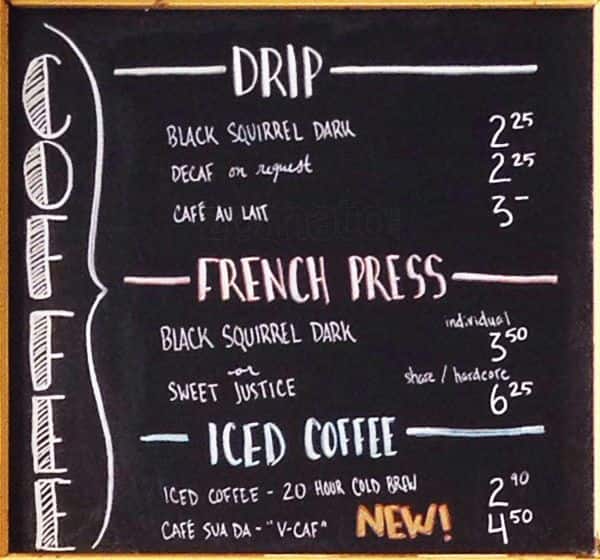 COFFEE
DRIP
BLACK SQUIRREL DARK 2 25
DECAF on request 2 25
CAFÉ AU LAIT 3 –
FRENCH PRESS
BLACK SQUIRREL DARK
individual
3 50
or
share / hardcore
SWEET JUSTICE 6 25
ICED COFFEE
ICED COFFEE - 20 HOUR COLD BREW 2 90
CAFÉ SUA DA - "V-CAF" NEW! 4 50